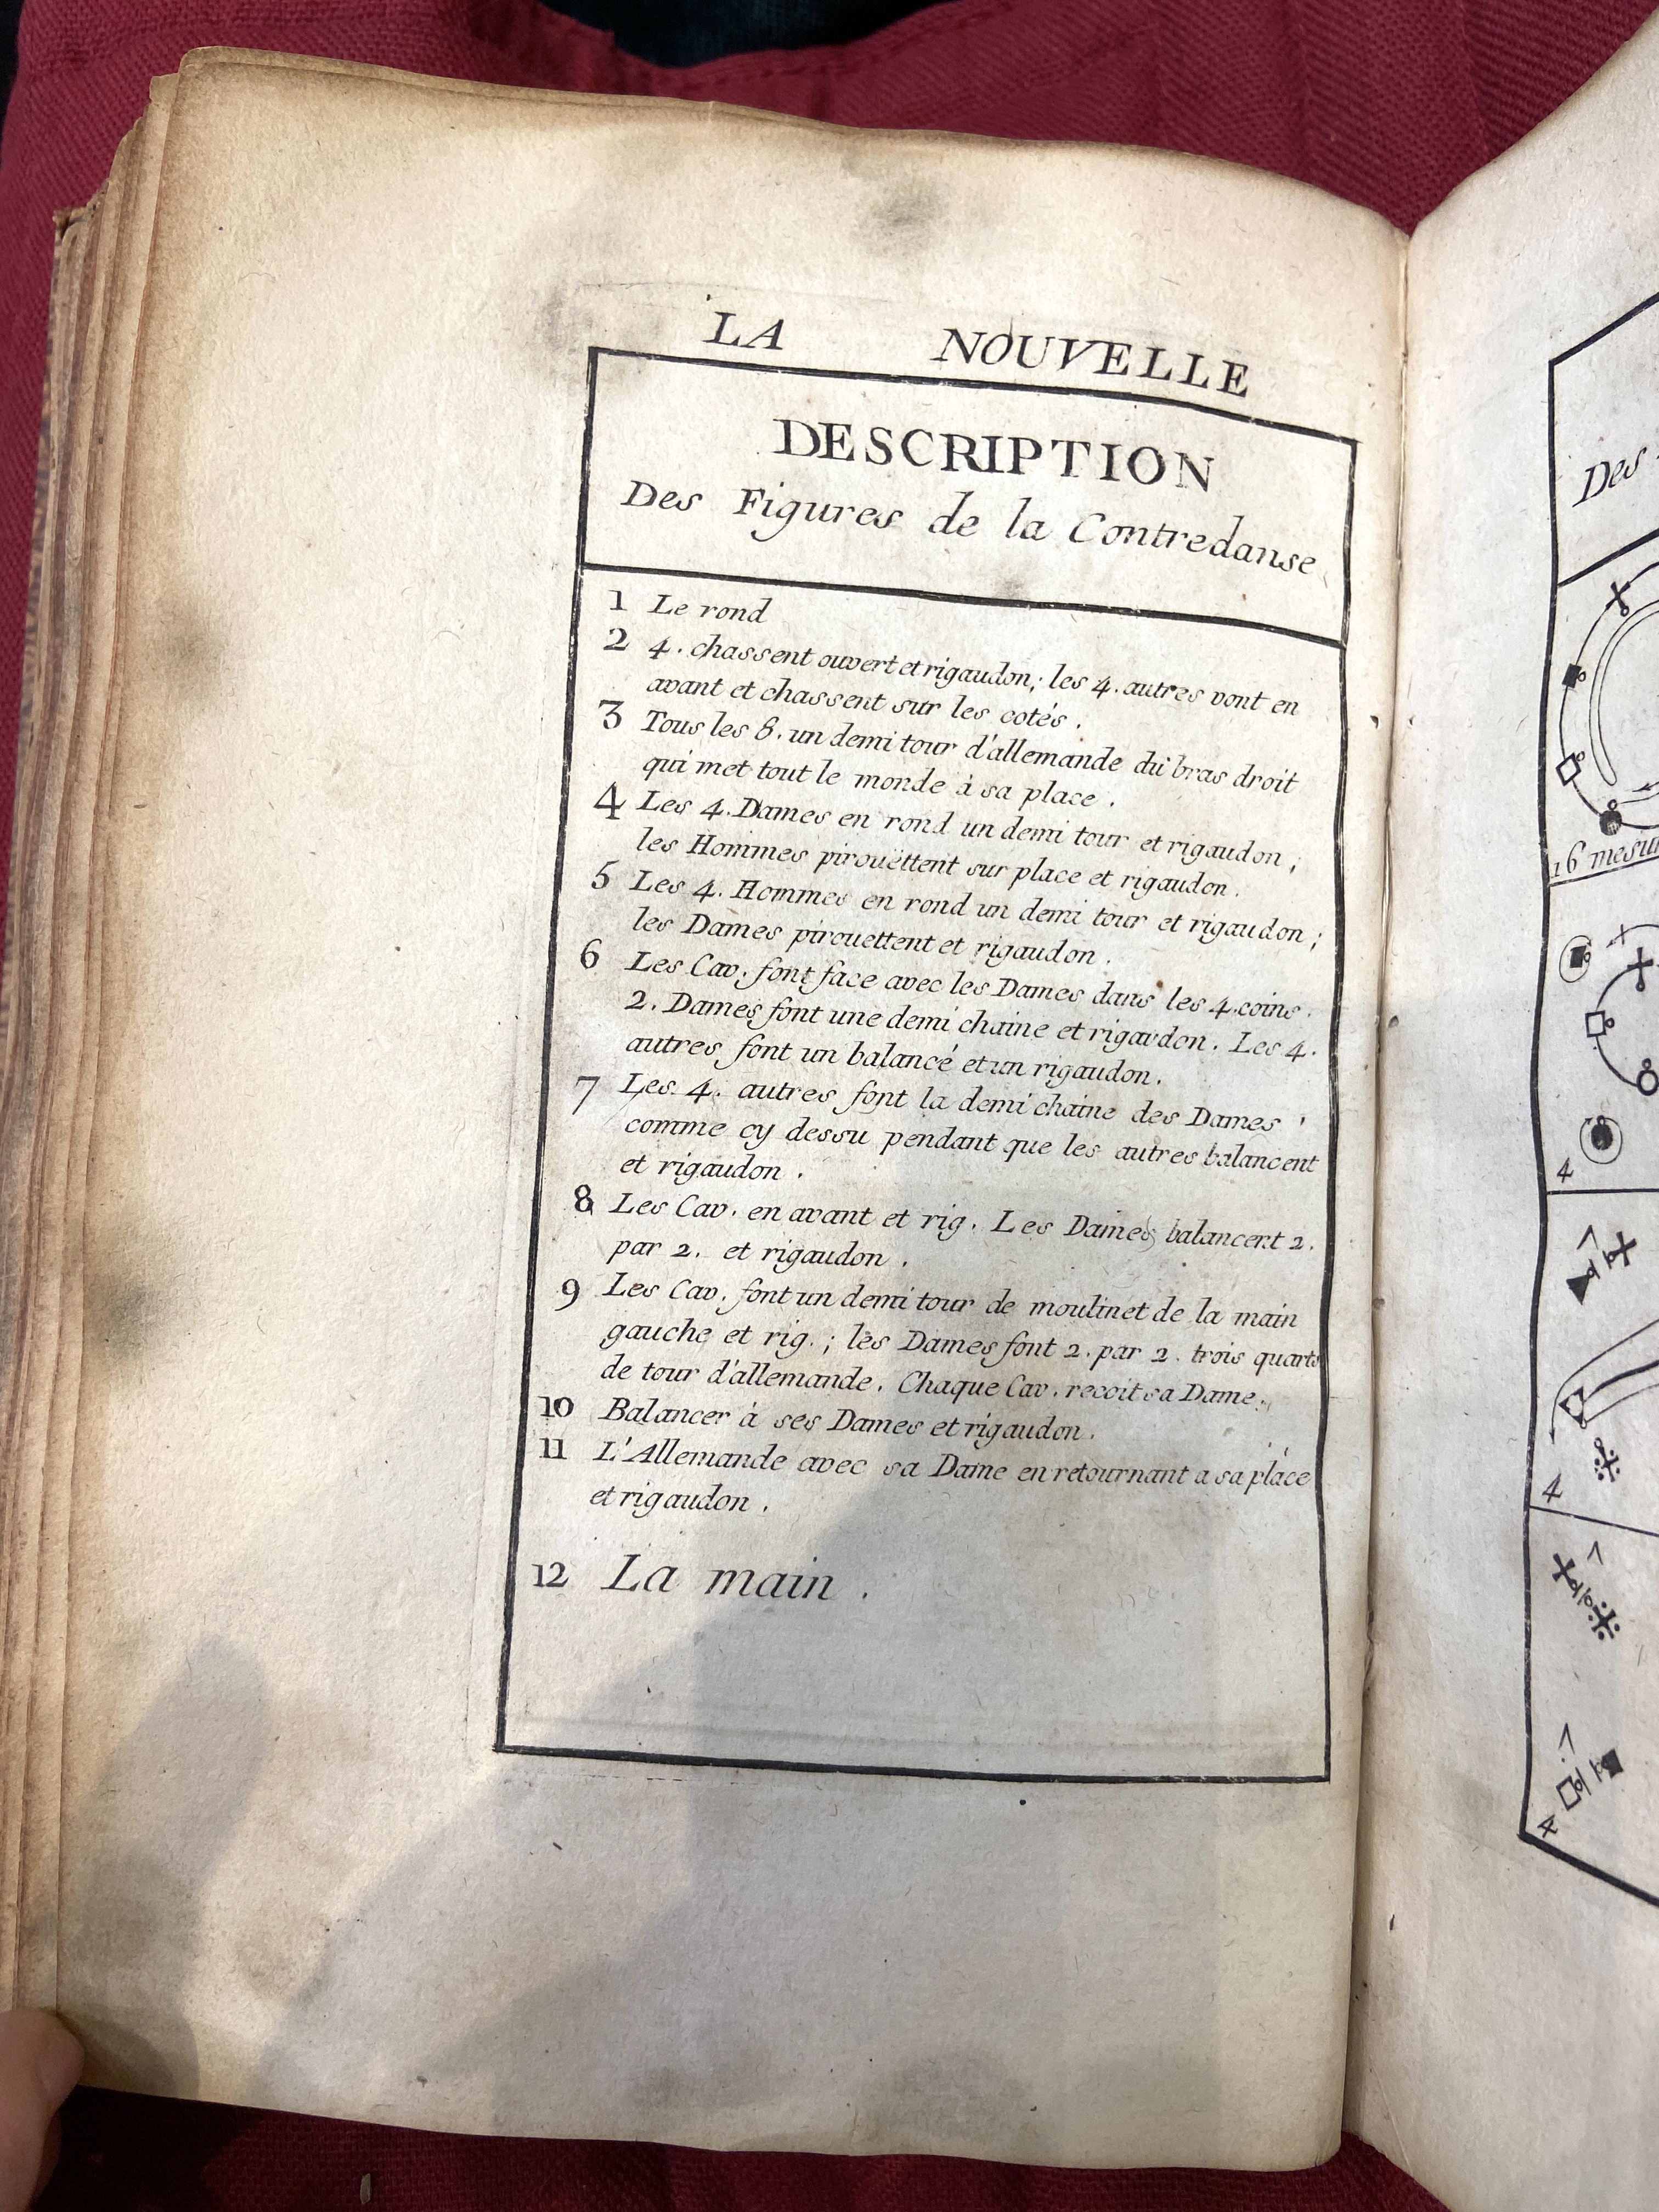 LA NOUVELLE
DESCRIPTION
Des Figures de la Contredanse
1 Le rond
2 4. chassent ouvert et rigaudon; les 4. autres vont en
avant et chassent sur les cotés.
3 Tous les 8. un demi tour d'allemande du bras droit
qui met tout le monde à sa place.
4 Les 4. Dames en rond un demi tour et rigaudon;
les Hommes pirouëttent sur place et rigaudon.
5 Les 4. Hommes en rond un demi tour et rigaudon;
les Dames pirouettent et rigaudon.
6 Les Cav. font face avec les Dames dans les 4. coins.
2. Dames font une demi chaine et rigaudon. Les 4.
autres font un balancé et un rigaudon.
7 Les 4. autres font la demi chaine des Dames
comme cy dessu pendant que les autres balancent
et rigaudon.
8 Les Cav. en avant et rig. Les Dames balancent 2.
par 2. et rigaudon.
9 Les Cav. font un demi tour de moulinet de la main
gauche et rig.; les Dames font 2. par 2. trois quarts
de tour d'allemande. Chaque Cav. recoit sa Dame.
10 Balancer à ses Dames et rigaudon.
11 L'Allemande avec sa Dame en retournant a sa place
et rigaudon.
12 La main.
Des
16 mesu
4
4
4